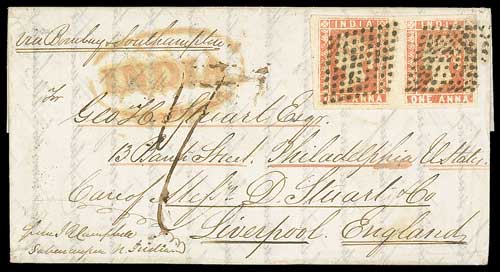 via Bombay & Southampton
INDIA INDIA
ONE ANNA
INDIA
To
Geo H. Stuart Esq.
13 Bank Street, Philadelphia U States
Care of Messrs D. Stuart & Co
Liverpool England